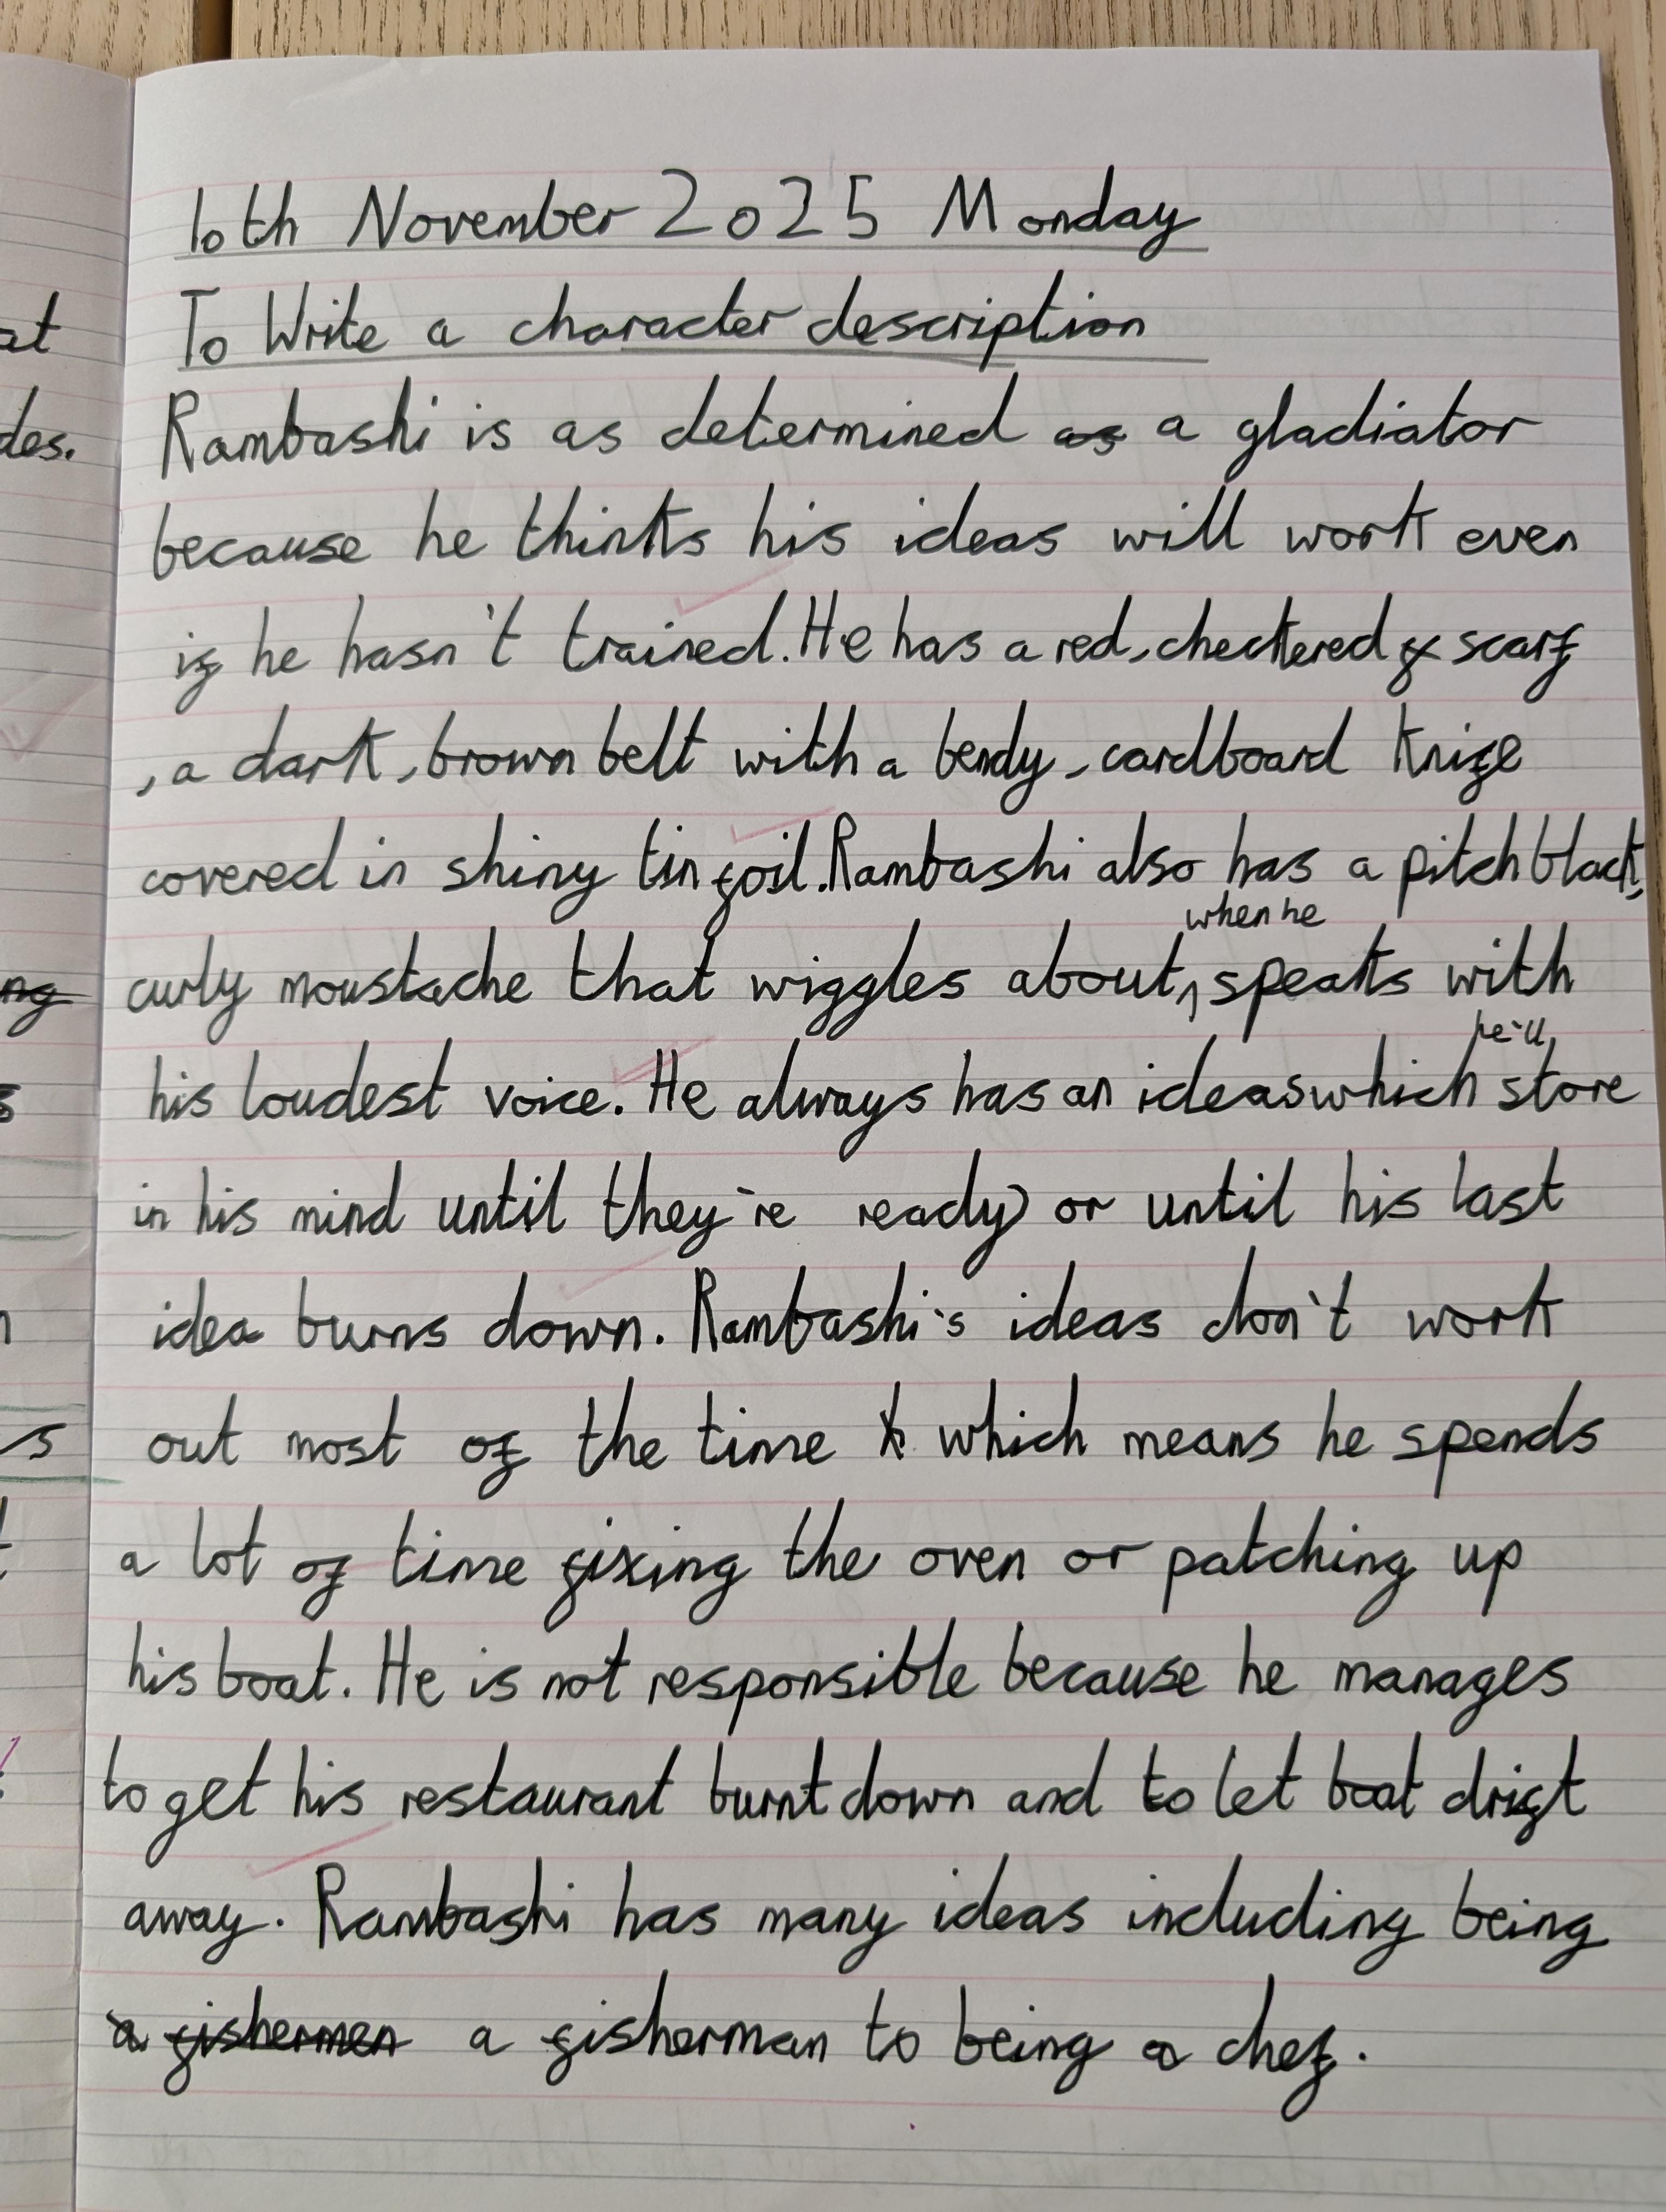 10th November 2025 Monday
To Write a character description
Rambashi is as determined as a gladiator
because he thinks his ideas will work even
if he hasn't trained. He has a red, checkered scarf
, a dark, brown belt with a bendy, cardboard knife
covered in shiny tin foil. Rambashi also has a pitch black,
when he
curly moustache that wiggles about, speaks with
he'll
his loudest voice. He always has an ideas which store
in his mind until they're ready or until his last
idea burns down. Rambashi's ideas don't work
out most of the time which means he spends
a lot of time fixing the oven or patching up
his boat. He is not responsible because he manages
to get his restaurant burnt down and to let boat drift
away. Rambashi has many ideas including being
a fishermen a fisherman to being a chef.
at
des.
ng
s